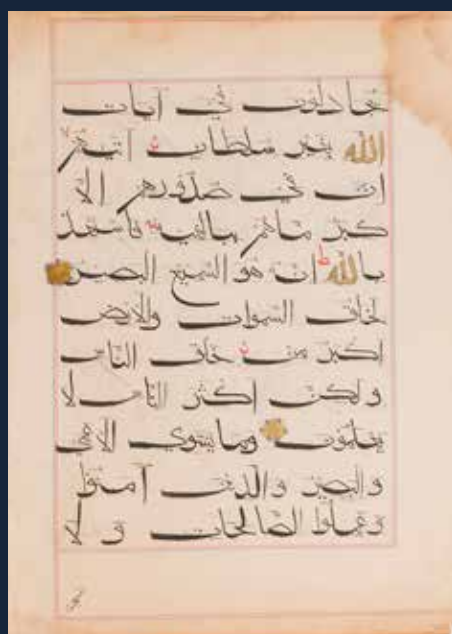 يجادلون في آيات
الله بغير سلطان اتيهم
ان في صدورهم الا
كبر ما هم ببالغيه فاستعذ
بالله انه هو السميع البصير
لخلق السموات والارض
اكبر من خلق الناس
ولكن اكثر الناس لا
يعلمون وما يستوي الاعمى
والبصير والذين آمنوا
وعملوا الصالحات ولا